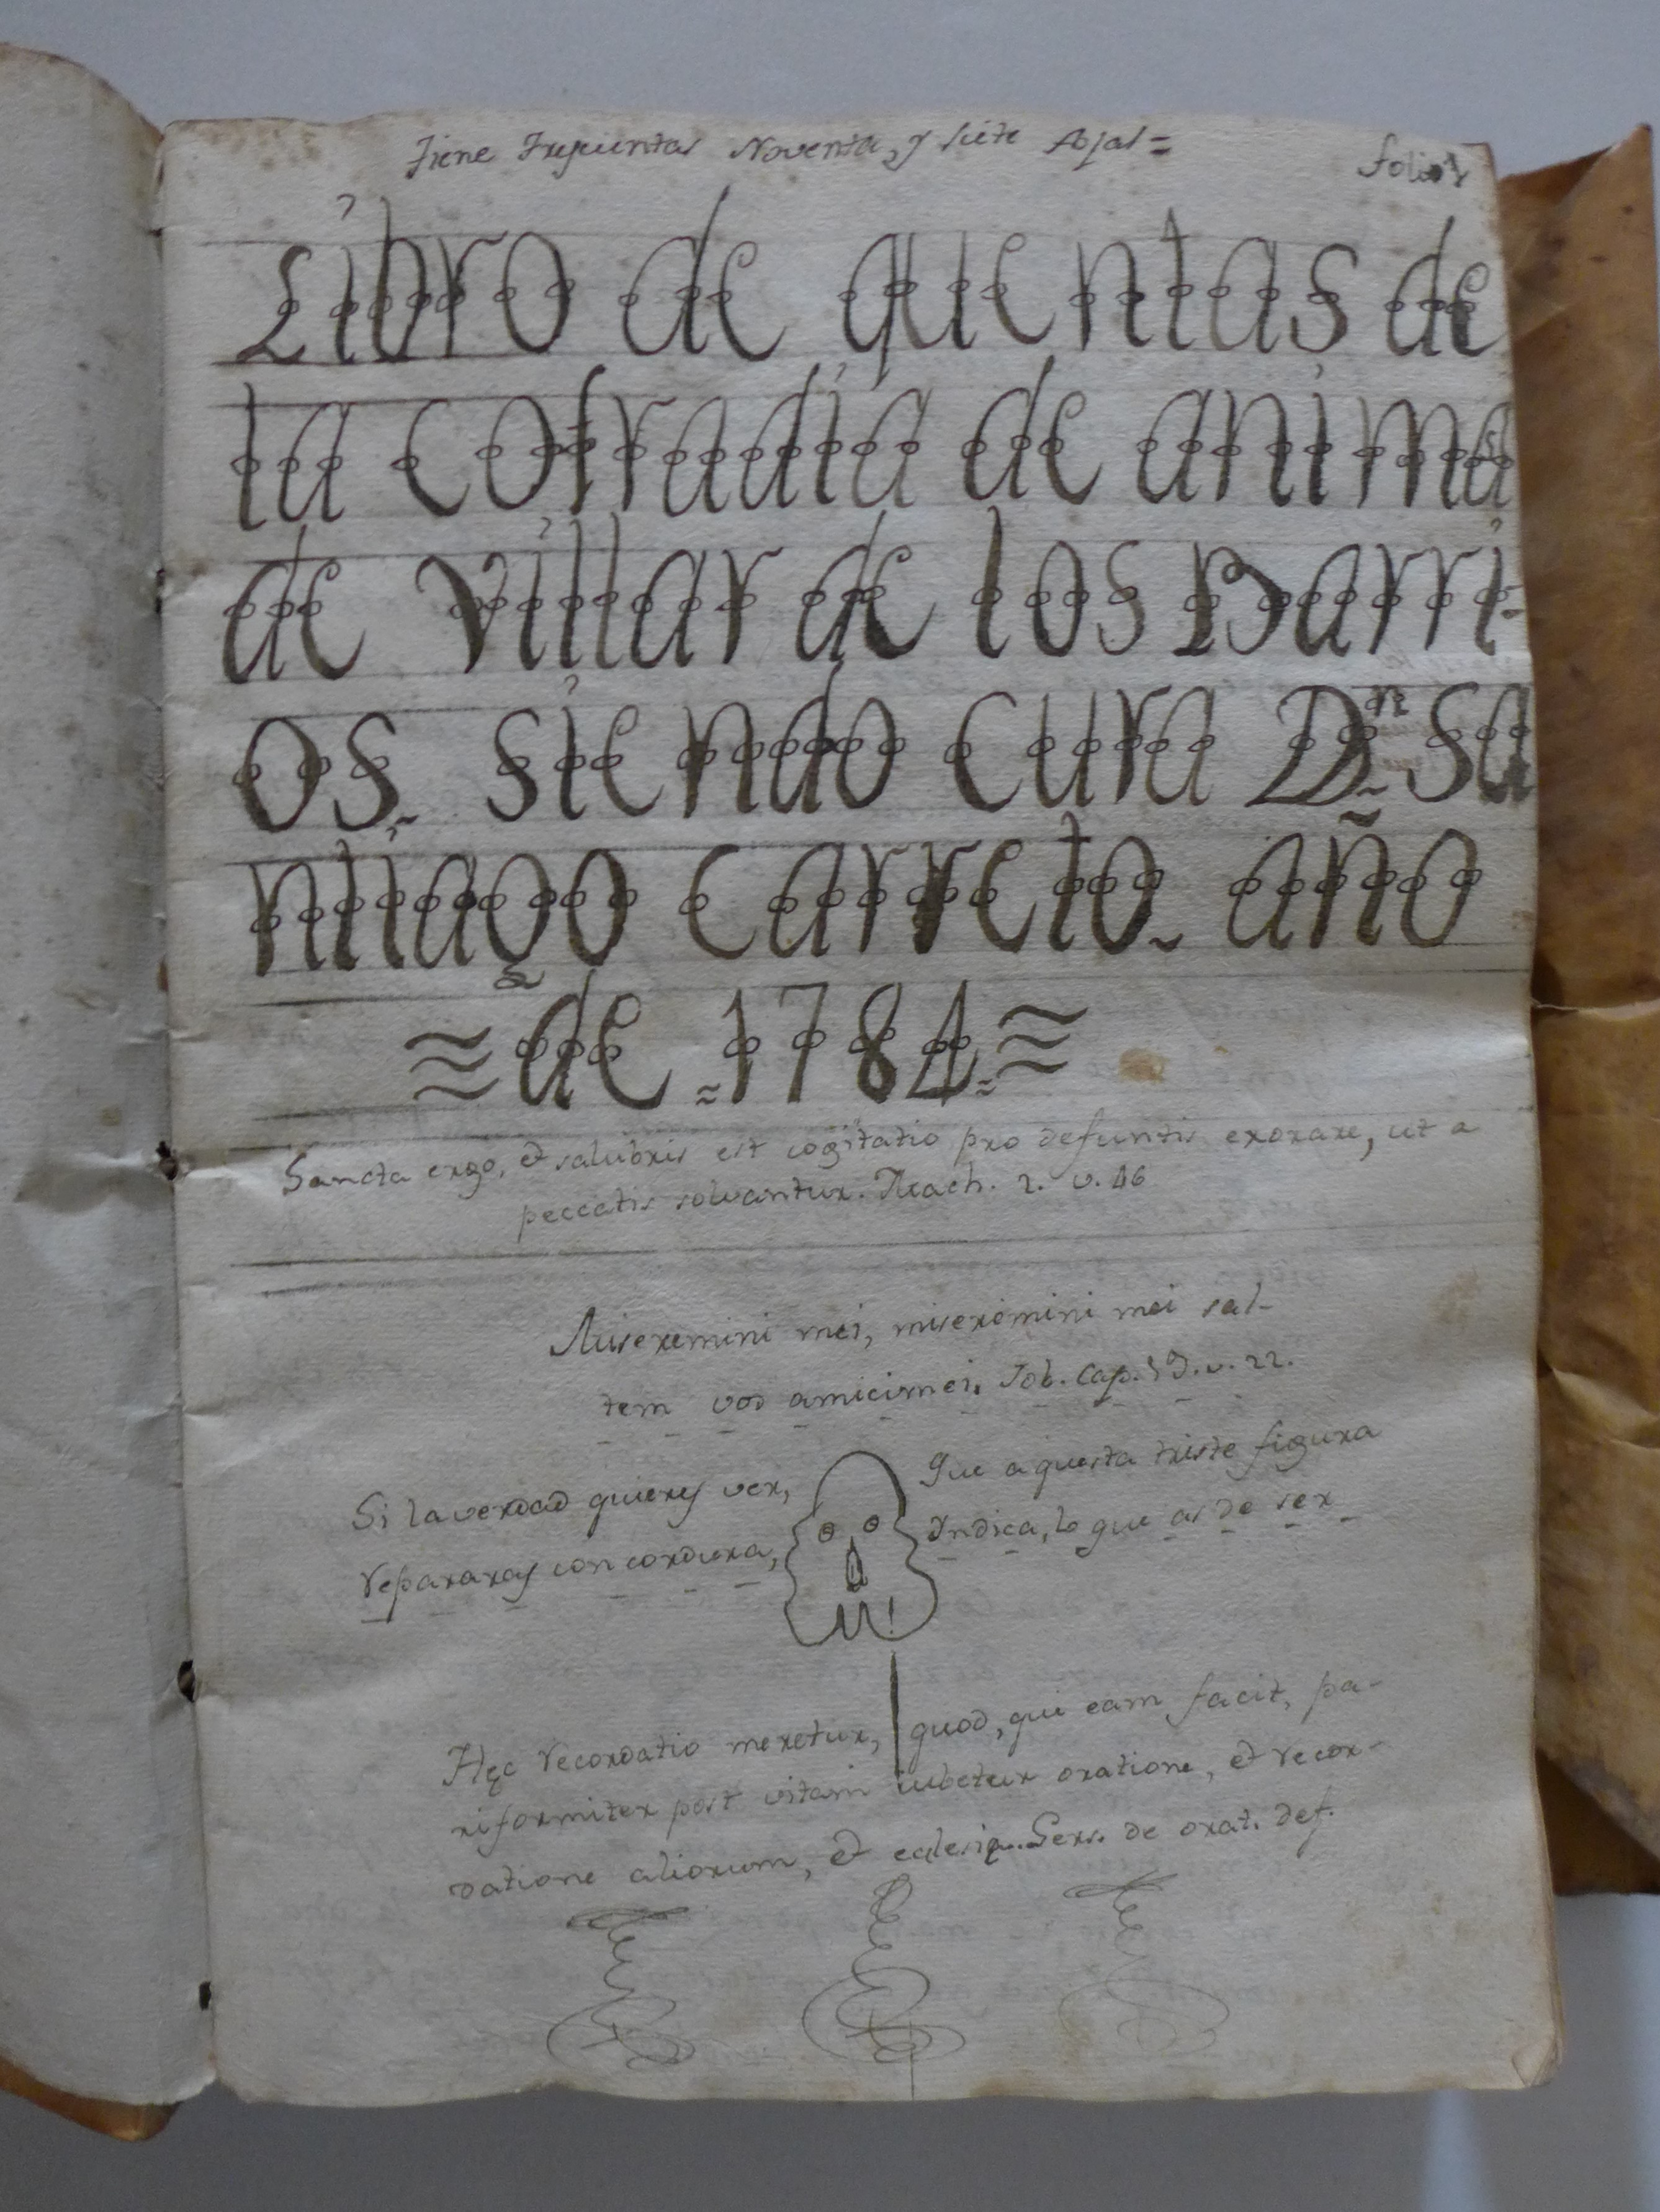 Tiene Trescientas Noventa, y siete Ojas=
folio 1
Libro de quentas de
la cofradia de animas
de villar de los Barri-
os, siendo cura Dn. Sa
ntiago Carreto año
≈ de 1784 ≈
Sancta ergo, et salubris est cogitatio pro defuntis exorare, ut a
peccatis solvantur. Mach. 2. v. 46
Miseremini mei, miseremini mei sal-
tem vos amici mei, Job. Cap. 19. v. 22.
Si la verdad quieres ver,
repararas con cordura,
Que aquesta triste figura
Yndica, lo que as de ser
Hęc recordatio meretur, quod, qui eam facit, pa-
riformiter post vitam iubetur oratione, et recor-
datione aliorum, et eclesię. Gers. de orat. def.